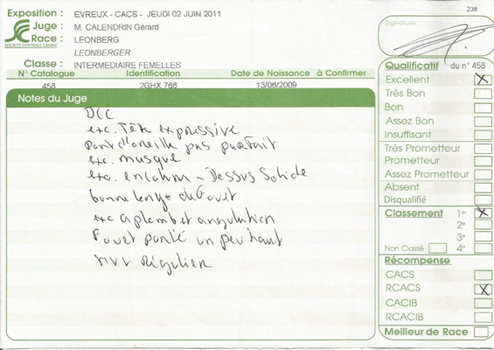 238
Exposition : EVREUX - CACS - JEUDI 02 JUIN 2011
Juge : M. CALENDRIN Gérard
Race : LEONBERG
LEONBERGER
SOCIÉTÉ CENTRALE CANINE
Classe : INTERMEDIAIRE FEMELLES
Signature :
N° Catalogue Identification Date de Naissance à Confirmer
458 2GHX 766 13/06/2009
Notes du Juge
DCC
exc. Tête expressive
port d'oreille pas parfait
exc. musque
exc. encolure - Dessus Solide
bonne longe du Fouet
exc aplomb et angulation
Fouet porté un peu haut
Régulier
Qualificatif du n° 458
Excellent X
Très Bon
Bon
Assez Bon
Insuffisant
Très Prometteur
Prometteur
Assez Prometteur
Absent
Disqualifié
Classement 1er X
2e
3e
Non Classé 4e
Récompense
CACS
RCACS X
CACIB
RCACIB
Meilleur de Race